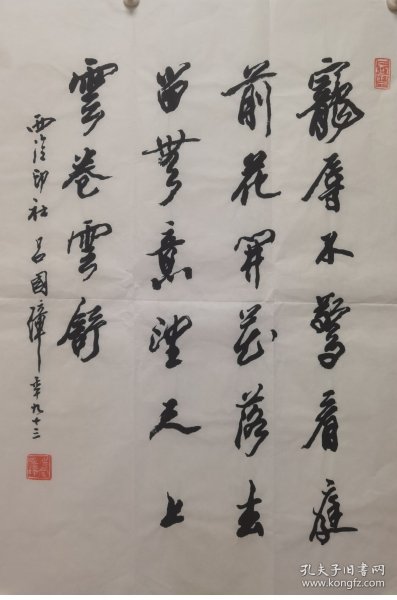 寵辱不驚看庭
前花開花落去
留無意望天上
雲卷雲舒
西泠印社 吕國璋 年九十三
孔夫子旧书网
www.kongfz.com